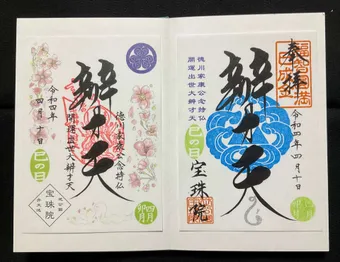 奉拝
徳川家康公念持仏
開運出世大辨才天
辨才天
巳の日
宝珠院
令和四年四月十日
徳川家康公念持仏
開運出世大辨才天
辨才天
令和四年
四月十日
巳の日
宝珠院